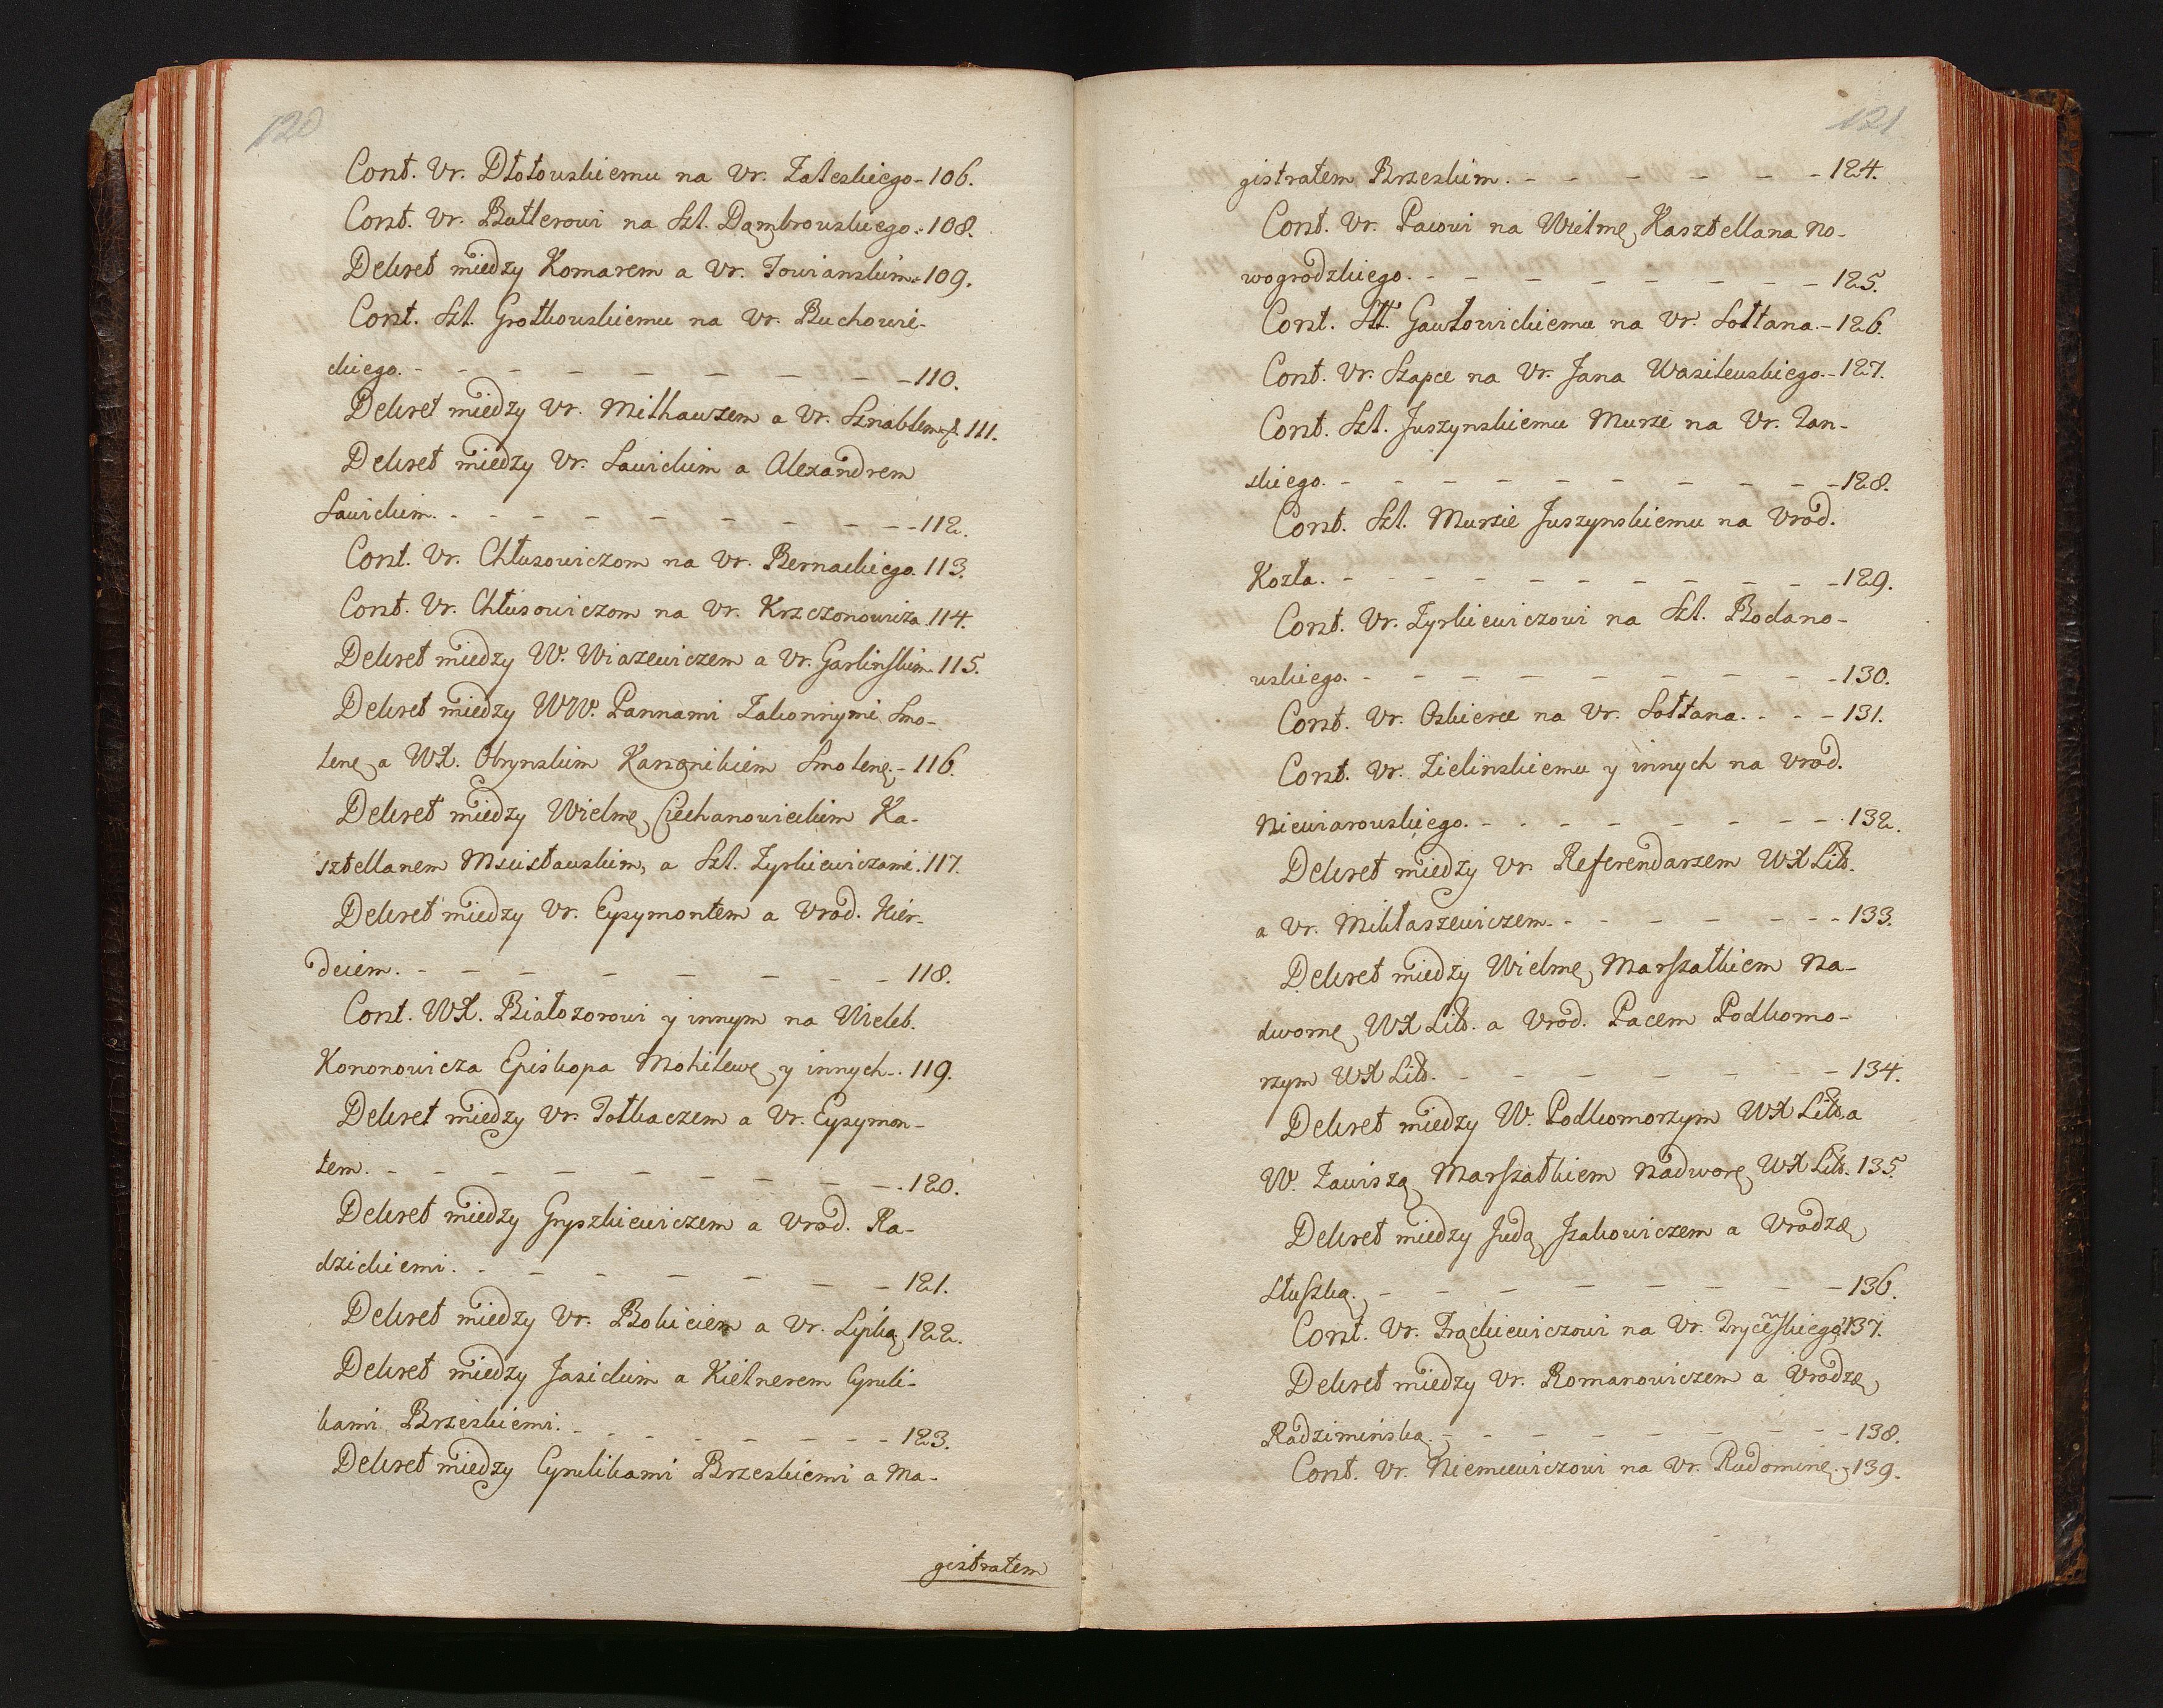 120
Cont. Ur. Dłotowskiemu na Ur. Zaleskiego - 106.
Cont. Ur. Butlerowi na Szl. Dąmbrowskiego. - 108.
Dekret między Komarem a Ur. Towianskim. - 109.
Cont. Szl. Grotkowskiemu na Ur. Buchowie-
ckiego. - - - - - - - - 110.
Dekret między Ur. Milhauzem a Ur. Sznablem f. 111.
Dekret między Ur. Sawickim a Alexandrem
Sawickim. - - - - - - - - 112.
Cont. Ur. Chłusowiczom na Ur. Bernackiego. 113.
Cont. Ur. Chłusowiczom na Ur. Krzczonowicza. 114.
Dekret między W. Wiazewiczem a Ur. Garlinskim. 115.
Dekret między WW. Pannami Zakonnymi Smo-
lenę, a WX. Obrynskim Kanonikiem Smolenę. - 116.
Dekret między Wielmę, Ciechanowieckim Ka-
sztellanem Mscisławskim, a Szl. Zyrkiewiczami. 117.
Dekret między Ur. Eysymontem a Urod. Kier-
deiem. - - - - - - - 118.
Cont. WX. Białozorowi y innym na Wieleb.
Kononowicza Episkopa Mohilewę, y innych - . 119.
Dekret między Ur. Tołkaczem a Ur. Eysymon-
tem. - - - - - - - - . 120.
Dekret między Gryszkiewiczem a Urod. Ra-
dzickiemi. - - - - - - - 121.
Dekret między Ur. Bokieiem a Ur. Lipką, 122.
Dekret między Jasickim a Kielnerem Cyruli-
kami Brzeskiemi. - - - - - - - 123.
Dekret między Cyrulikami Brzeskiemi a Ma-
gistratem
121
gistratem Brzeskim. - - - - - - 124.
Cont. Ur. Pacowi na Wielmę, Kasztellana No-
wogrodzkiego. - - - - - - - 125.
Cont. Szl. Gawłowickiemu na Ur. Sołtana. - 126.
Cont. Ur. Szapce na Ur. Jana Wasilewskiego. - 127.
Cont. Szl. Juszynskiemu Murze na Ur. Zan-
skiego. - - - - - - - - - 128.
Cont. Szl. Murzie Juszynskiemu na Urod.
Kozła. - - - - - - - - - 129.
Cont. Ur. Zyrkiewiczowi na Szl. Bodano-
wskiego. - - - - - - - - 130.
Cont. Ur. Oskierce na Ur. Sołtana. - - - 131.
Cont. Ur. Zielinskiemu y innych na Urod.
Niewiarowskiego. - - - - - - - . 132.
Dekret między Ur. Referendarzem WXLitt.
a Ur. Mikłaszewiczem. - - - - - - - 133.
Dekret między Wielmę, Marszałkiem Na-
dwornę, WXLitt. a Urod. Pacem Podkomo-
rzym WXLitt. - - - - - - - 134.
Dekret między W. Podkomorzym WXLitt. a
W. Zawiszą, Marszałkiem Nadworę, WXLitt. 135.
Dekret między Judą, Jzakowiczem a Urodzę,
Słuszką. - - - - - - - - 136.
Cont. Ur. Frąckiewiczowi na Ur. 137.
Dekret między Ur. Romanowiczem a Urodzę,
Radziminską. - - - - - - - - 138.
Cont. Ur. Niemcewiczowi na Ur. Rudominę. - 139.